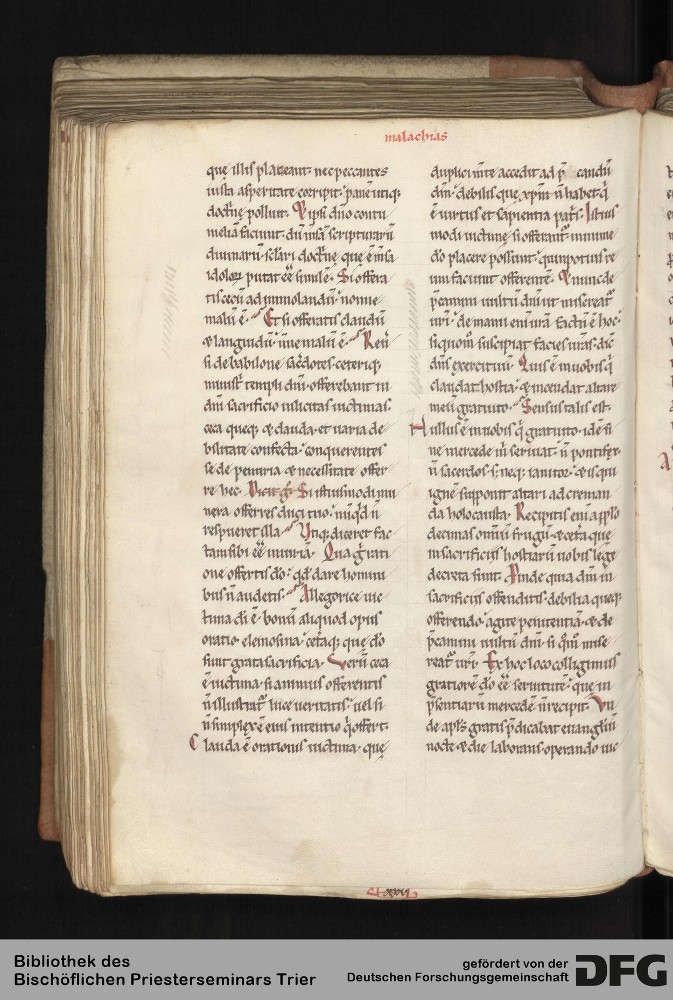 malachias
quę illis placeant· nec peccantes
iusta asperitate corripit· panē utiq;
doctrinę polluit· Et ipsi dño contu
meliā faciunt· dum sc̄am scripturarū
diuinarū· sclari doctnę que ē in sa
putat eē simile· Si offera
tis cecū ad immolandū· nonne
malū ē· Et si offeratis claudū
& languidū· nne malū ē· Reu
si de babilone sacdotes· ceteriq;
minist templi dn̄i· offerebant in
dn̄i sacrificio inlicitas uictimas·
ceca queq; & clauda· et uaria de
bilitate confecta· conquerentes
se de penuria & necessitate offer
re hec· Dicit g̊· Si istiusmodi mu
nera offerres duci tuo· nūqd n̄
respueret illa· Utiq; diceret fac
tam sibi eē iniuriā· Qua g̊ rati
one offertis dō· qd dare homini
bus n̄ audetis· Allegorice uic
tima di ē· bonū aliquod opus
oratio· elemosina· cetaq; que dō
sunt grata sacrificia· Verū ceca
ē uictima· si animus offerentis
n̄ illustrat̄ luce ueritatis· uel si
n̄ simplex ē eius intentio q offert·
Clauda ē orationis uictima· quę
duplici m̄te accedit ad candū
dm̄· debilis que xpm̄ n̄ habet· q̄
ē uirtus et sapientia patris· Istius
modi uictime si offerant̄· minime
dō placere possunt· quin potius re
um faciunt offerentē· Et nunc de
pcamini uultū dn̄i ut misereat̄
uri· de manu enī ur̄a factū ē hoc·
si quom̊ suscipiat facies uras· dic̄
dn̄s exercituū· Quis ē in uobis q̄
claudat hostia· & incendat altare
meū gratuito· Sensus talis est·
Nullus ē in uobis q̄ gratuito· id ē si
ne mercede m̄ seruiat· n̄ pontifex·
n̄ sacerdos· s; neq; ianitor· & is qui
ignē supponit altari ad creman
da holocausta· Recipitis enī a pplō
decimas omniū frugū· & ceta que
in sacrificiis hostiarū uobis lege
decreta sunt· Pinde quia dm̄ in
sacrificiis offenditis· debilia queq;
offerendo· agite penitentiā· & de
pcamini uultū dn̄i· si qm̊ mise
reat̄ uri· Ex hoc loco colligimus
gratiorē dō eē seruitutē· que in
psentiarū mercedē n̄ recipit· Vn
de apls gratis pdicabat euangliū·
nocte & die laborans· operando uic
Bibliothek des
Bischöflichen Priesterseminars Trier
gefördert von der
Deutschen Forschungsgemeinschaft
DFG